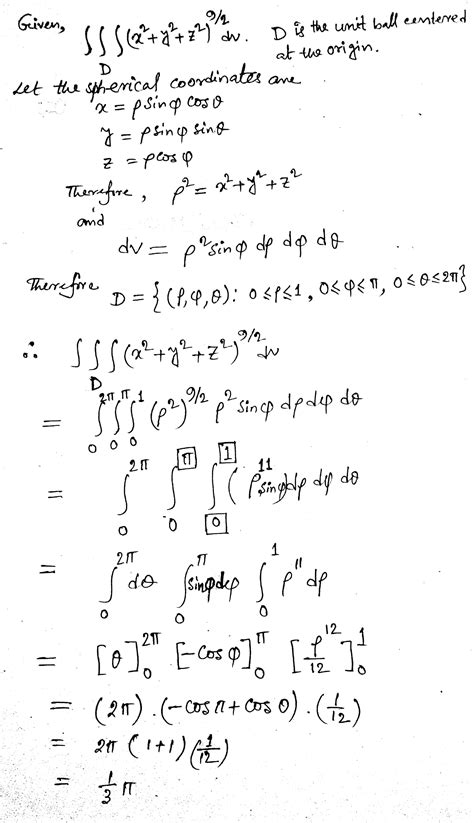 Given, ∫∫∫(x²+y²+z²)^9/2 dv. D is the unit ball centered
D at the origin.
Let the spherical coordinates are
x = ρ sinφ cosθ
y = ρ sinφ sinθ
z = ρ cosφ
Therefore, ρ² = x²+y²+z²
and
dv = ρ² sinφ dρ dφ dθ
Therefore D = {(ρ,φ,θ): 0≤ρ≤1, 0≤φ≤π, 0≤θ≤2π}
∴ ∫∫∫(x²+y²+z²)^9/2 dv
D
= ∫₀^2π ∫₀^π ∫₀^1 (ρ²)^9/2 ρ² sinφ dρ dφ dθ
= ∫₀^2π ∫₀^π ∫₀^1 (ρ^11 sinφ) dρ dφ dθ
= ∫₀^2π dθ ∫₀^π sinφ dφ ∫₀^1 ρ^11 dρ
= [θ]₀^2π [-cosφ]₀^π [ρ^12/12]₀^1
= (2π) · (-cosπ + cos0) · (1/12)
= 2π (1+1) (1/12)
= 1/3 π